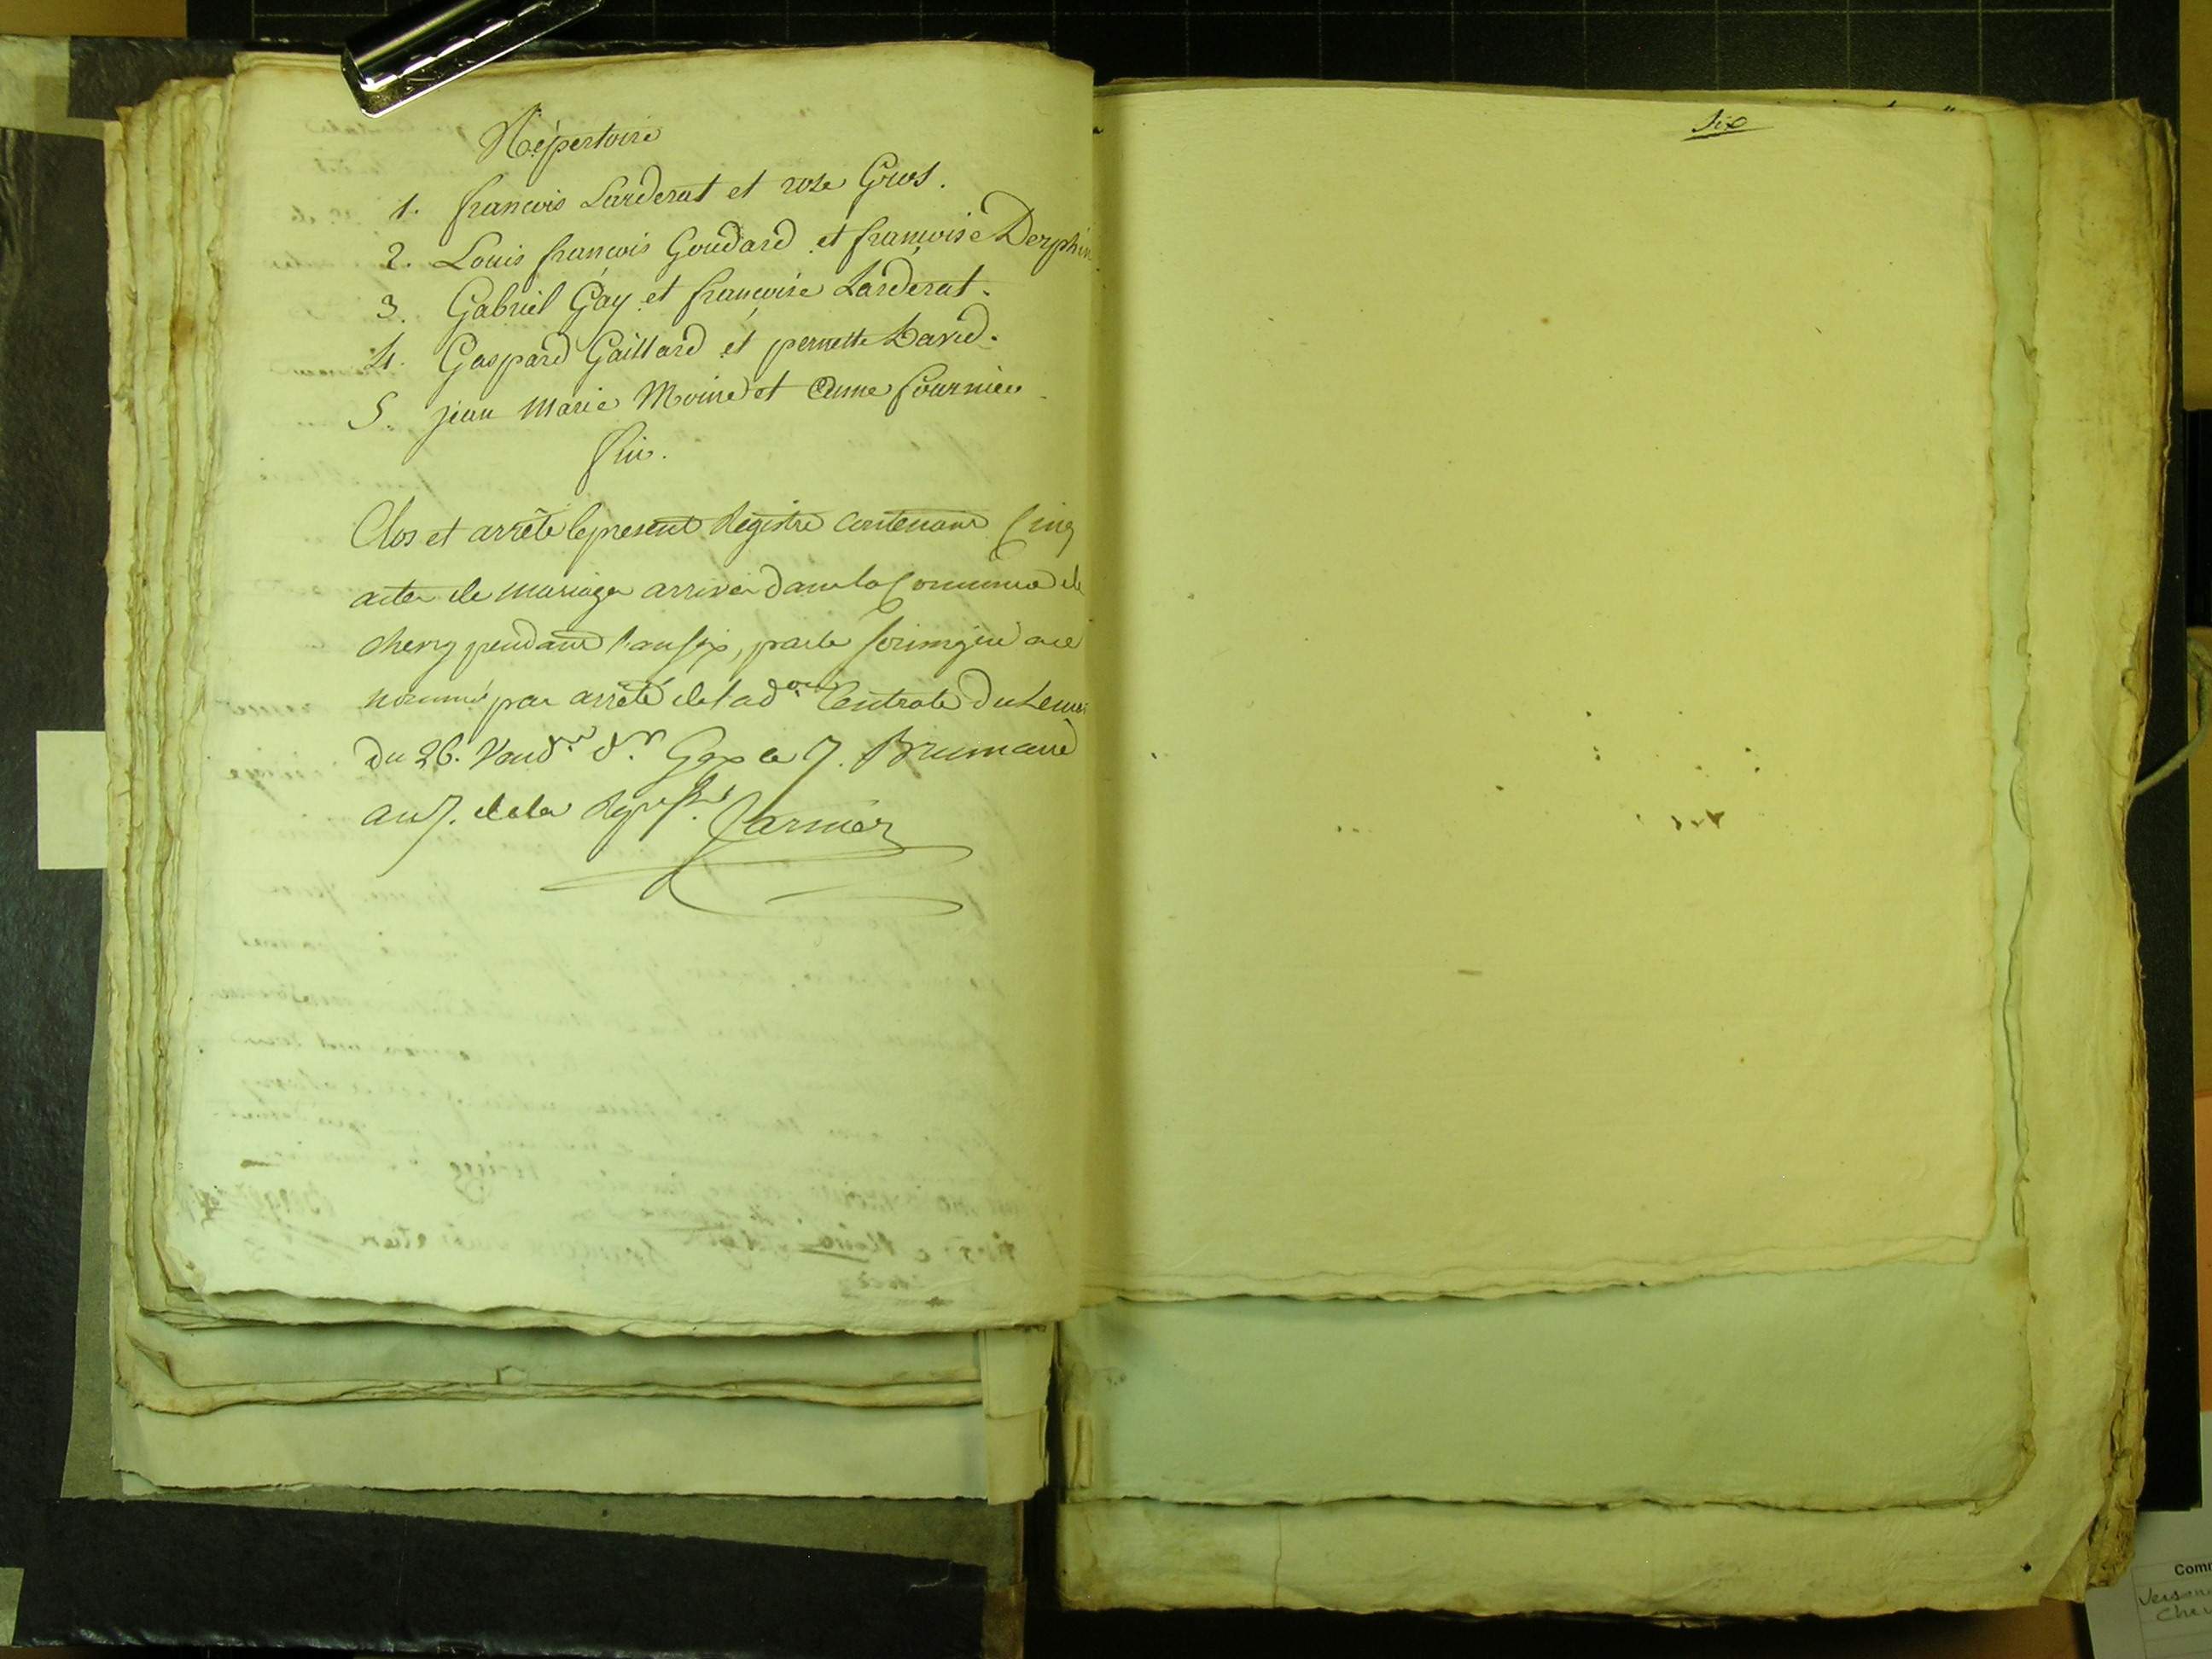 Répertoire
1. françois Larderat et roze Gros.
2. Louis françois Goudard et françoise Derphin
3. Gabriel Gay et françoise Larderat.
4. Gaspard Gaillard et pernette David.
5. jean Marie Moine et Anne fournier
fin.
Clos et arrêté le present Registre contenant Cinq
actes de mariage arrivés dans la Commune de
chevry pendant l'an six, par le soussigné
nommé par arrêté de l'ad.on Centrale du Leman
du 26. Vend.re d.r Gex le 7. Brumaire
an 7. de la Répu
six
Comm
Verson
Chev